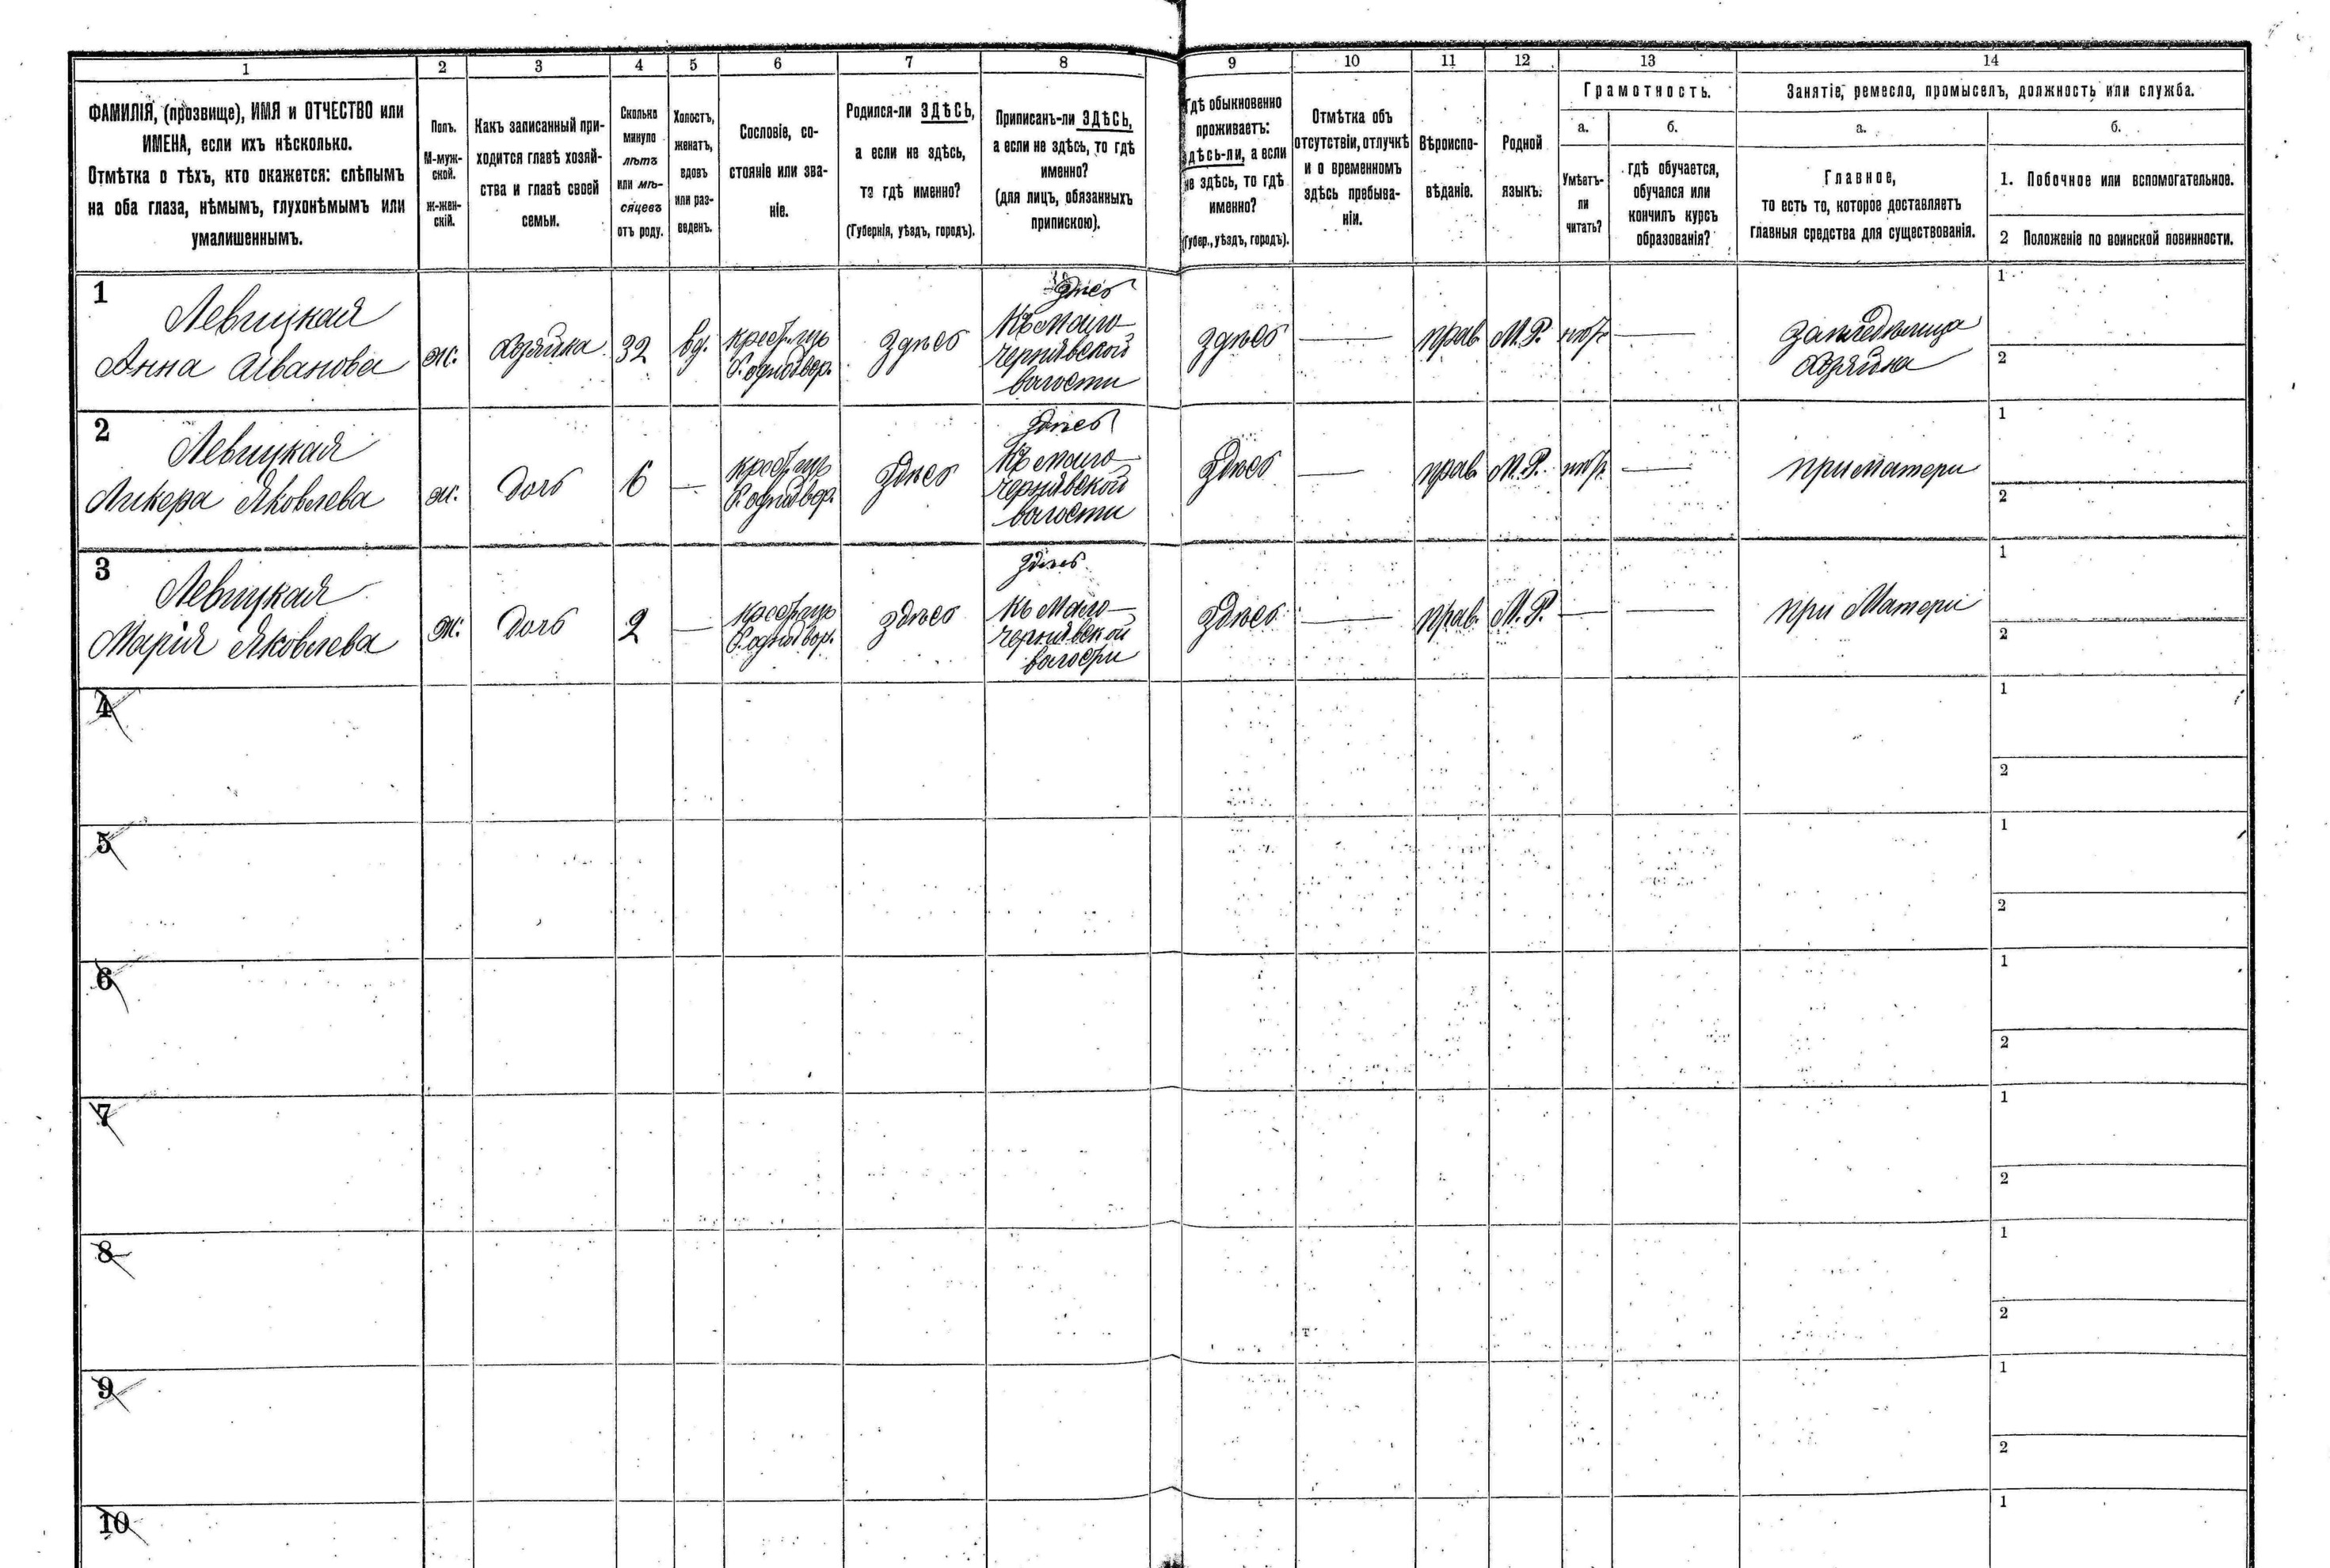 1 2 3 4 5 6 7 8 9 10 11 12 13 14
ФАМИЛІЯ, (прозвище), ИМЯ и ОТЧЕСТВО или
ИМЕНА, если ихъ нѣсколько.
Отмѣтка о тѣхъ, кто окажется: слѣпымъ
на оба глаза, нѣмымъ, глухонѣмымъ или
умалишеннымъ.
Полъ.
М-муж-
ской.
ж-жен-
скій.
Какъ записанный при-
ходится главѣ хозяй-
ства и главѣ своей
семьи.
Сколько
минуло
лѣтъ
или мѣ-
сяцевъ
отъ роду.
Холостъ,
женатъ,
вдовъ
или раз-
веденъ.
Сословіе, со-
стояніе или зва-
ніе.
Родился-ли ЗДѢСЬ,
а если не здѣсь,
то гдѣ именно?
(Губернія, уѣздъ, городъ).
Приписанъ-ли ЗДѢСЬ,
а если не здѣсь, то гдѣ
именно?
(для лицъ, обязанныхъ
припискою).
Гдѣ обыкновенно
проживаетъ:
здѣсь-ли, а если
не здѣсь, то гдѣ
именно?
(Губер., уѣздъ, городъ).
Отмѣтка объ
отсутствіи, отлучкѣ
и о временномъ
здѣсь пребыва-
ніи.
Вѣроиспо-
вѣданіе.
Родной
языкъ.
Грамотность.
а.
Умѣетъ-
ли
читать?
б.
гдѣ обучается,
обучался или
кончилъ курсъ
образованія?
Занятіе, ремесло, промыселъ, должность или служба.
а.
Главное,
то есть то, которое доставляетъ
главныя средства для существованія.
б.
1. Побочное или вспомогательное.
2 Положеніе по воинской повинности.
1
Левицкая
Анна Иванова
ж.
хозяйка
32
вд.
здѣсь
здѣсь
Къ Мало-
чернявской
волости
здѣсь
—
прав.
М. Р.
—
хозяйка
1
2
2
Левицкая
Ликера Яковлева
ж.
дочь
6
—
здѣсь
здѣсь
Къ мало-
чернявской
волости
здѣсь
—
прав.
М. Р.
—
при матери
1
2
3
Левицкая
Марія Яковлева
ж.
дочь
2
—
здѣсь
здѣсь
къ Мало-
чернявской
волости
здѣсь
—
прав.
М. Р.
—
—
при Матери
1
2
4
1
2
5
1
2
6
1
2
7
1
2
8
1
2
9
1
2
10
1